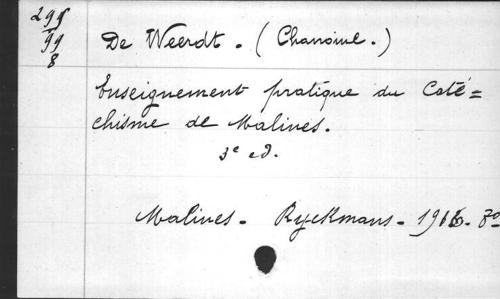 299
99
8
De Weerdt. (Chanoine.)
Enseignement pratique du Caté=
chisme de Malines.
3e ed.
Malines. Ryckmans. 8o